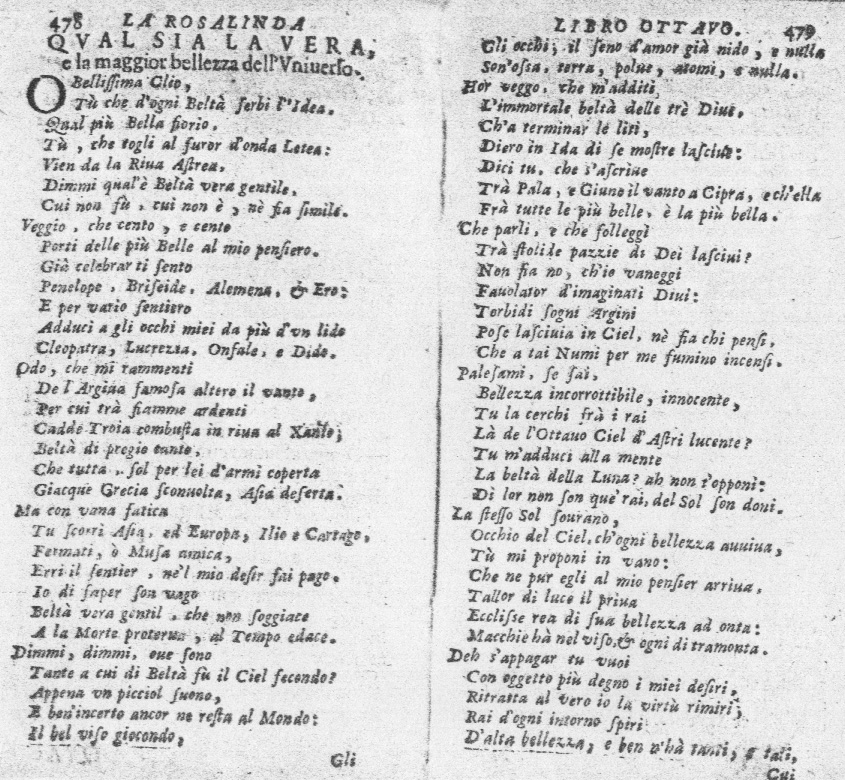 478 LA ROSALINDA
QVAL SIA LA VERA,
e la maggior bellezza dell'Vniuerso.
O Bellissima Clio,
Tù che d'ogni Beltà serbi l'Idea.
Qual più Bella fiorio.
Tù, che togli al furor d'onda Letea:
Vien da la Riua Astrea.
Dimmi qual'è Beltà vera gentile.
Cui non fù, cui non è, nè fia simile.
Veggio, che cento, e cento
Porti delle più Belle al mio pensiero.
Già celebrar ti sento
Penelope, Briseide, Alemena, & Ero:
E per vario sentiero
Adduci a gli occhi miei da più d'vn lido
Cleopatra, Lucrezia, Onfale, e Dido.
Odo, che mi rammenti
De l'Argiua famosa altero il vanto,
Per cui trà fiamme ardenti
Cadde Troia combusta in riua al Xanto;
Beltà di pregio tanto,
Che tutta, sol per lei d'armi coperta
Giacque Grecia sconuolta, Asia deserta.
Ma con vana fatica
Tu scorri Asia, ed Europa, Ilio e Cartago,
Fermati, ò Musa amica,
Erri il sentier, nè'l mio desir fai pago.
Io di saper son vago
Beltà vera gentil, che non soggiace
A la Morte proterua, al Tempo edace.
Dimmi, dimmi, oue sono
Tante a cui di Beltà fù il Ciel fecondo?
Appena vn picciol suono,
E ben'incerto ancor ne resta al Mondo:
Il bel viso giocondo,
Gli
LIBRO OTTAVO. 479
Gli occhi, il seno d'amor già nido, e nulla
Son'ossa, terra, polue, atomi, e nulla.
Hor veggo, che m'additi
L'immortale beltà delle trè Diue,
Ch'a terminar le liti,
Diero in Ida di se mostre lasciue:
Dici tu, che s'ascriue
Trà Pala, e Giuno il vanto a Cipra, e ch'ella
Frà tutte le più belle, è la più bella.
Che parli, e che folleggi
Trà stolide pazzie di Dei lasciui?
Non fia no, ch'io vaneggi
Fauolator d'imaginati Diui:
Torbidi sogni Argini
Pose lasciuia in Ciel, nè fia chi pensi,
Che a tai Numi per me fumino incensi.
Palesami, se sai,
Bellezza incorrottibile, innocente,
Tu la cerchi frà i rai
Là de l'Ottauo Ciel d'Astri lucente?
Tu m'adduci alla mente
La beltà della Luna? ah non t'opponi:
Di lor non son que' rai, del Sol son doni.
La stesso Sol sourano,
Occhio del Ciel, ch'ogni bellezza auuiua,
Tù mi proponi in vano:
Che ne pur egli al mio pensier arriua,
Tallor di luce il priua
Ecclisse rea di sua bellezza ad onta:
Macchie hà nel viso, & ogni dì tramonta.
Deh s'appagar tu vuoi
Con oggetto più degno i miei desiri,
Ritratta al vero io la virtù rimiri;
Rai d'ogni intorno spiri
D'alta bellezza, e ben n'hà tanti, e tali,
Cui